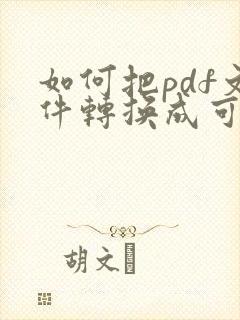 如何把pdf文
件轉換成可
胡文